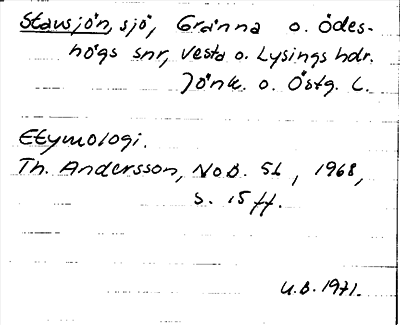 Stavsjön, sjö, Gränna o. Ödes-
högs snr, Vesta o. Lysings hdr.
Jönk. o. Östg. L.
Etymologi.
Th. Andersson, NoB. 56, 1968,
s. 15 ff.
U.B. 1971.